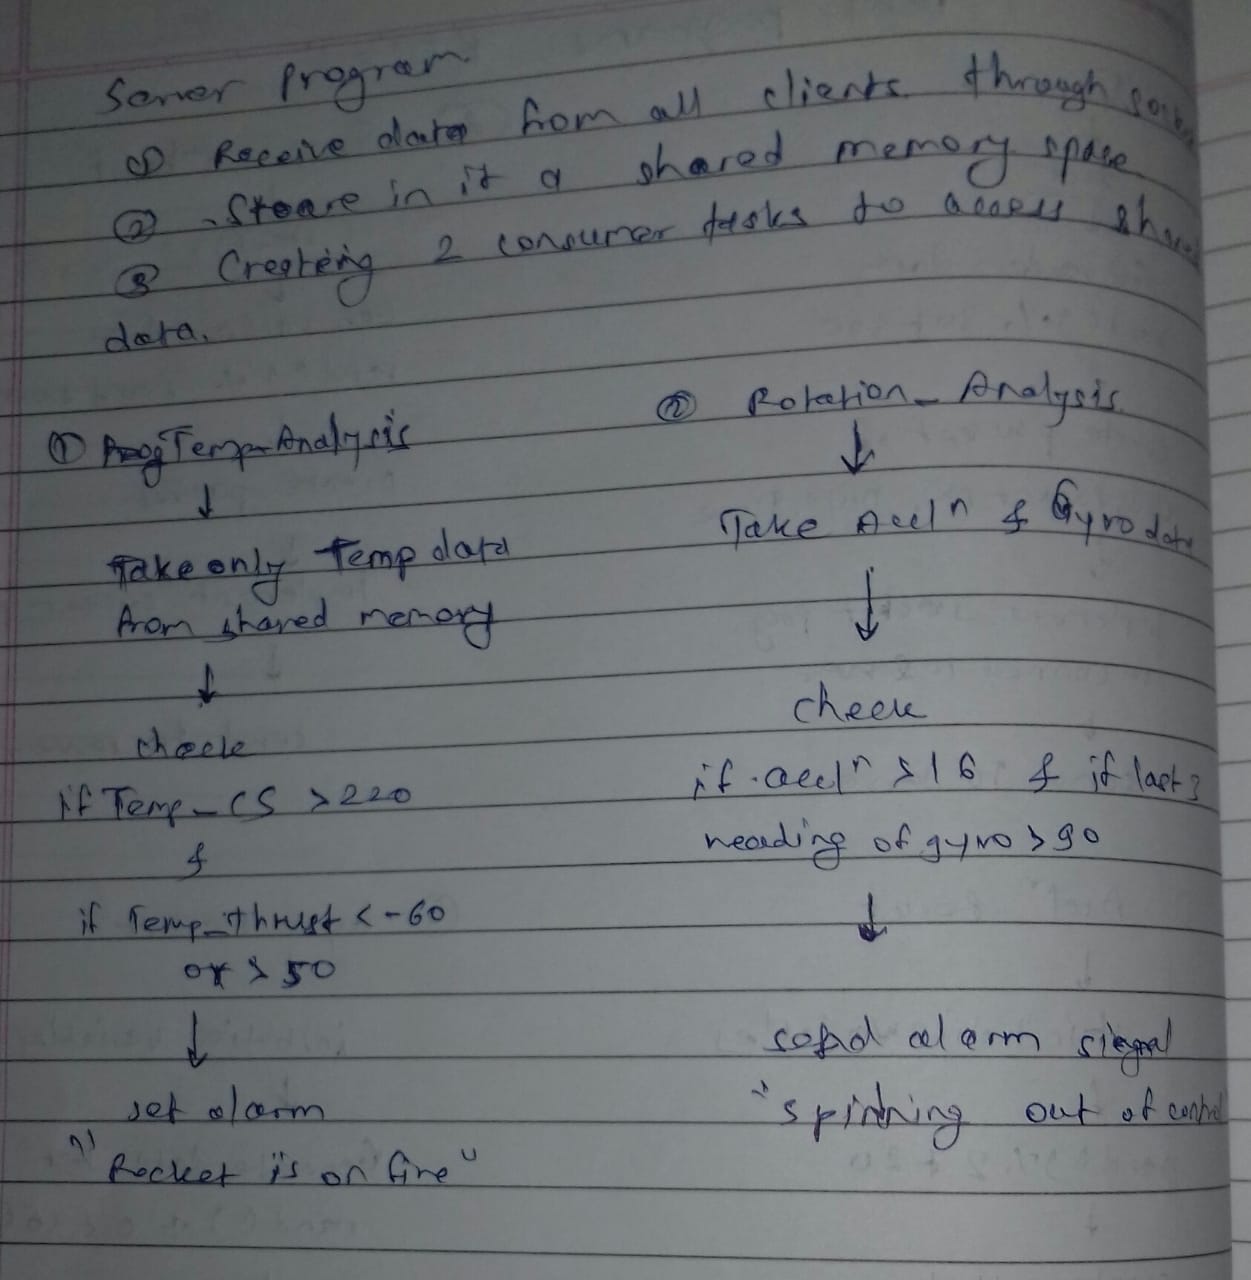 Server Program
① Receive data from all clients through
② Stoare in it a shared memory space
③ Creating 2 consumer tasks to access
data.
① Temp_Analysis
↓
Take only Temp data
from shared memory
↓
check
if Temp_CS >220
&
if Temp_thrust < -60
or > 50
↓
set alarm
"Rocket is on fire"
② Rotation_Analysis
↓
Take Accln & Gyro data
↓
check
if accln > 16 & if last 3
reading of gyro > 90
↓
alarm signal
"spinning out of control